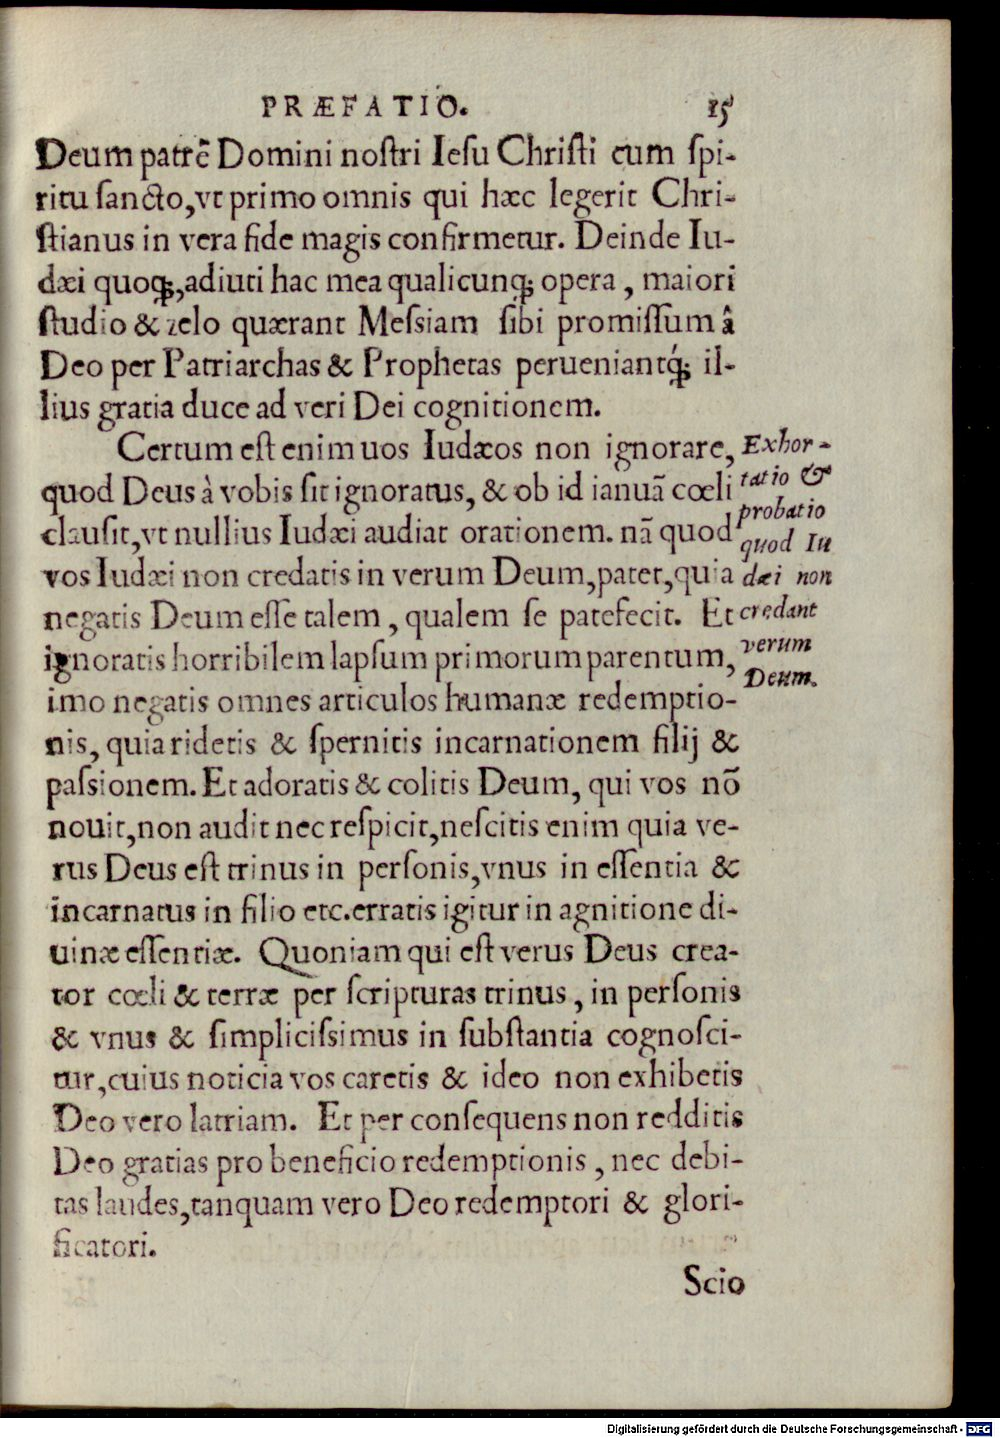 PRÆFATIO. 15
Deum patrẽ Domini noſtri Ieſu Chriſti cum ſpi-
ritu ſancto, vt primo omnis qui hæc legerit Chri-
ſtianus in vera fide magis confirmetur. Deinde Iu-
dæi quoq;, adiuti hac mea qualicunq; opera, maiori
ſtudio & zelo quærant Meſsiam ſibi promiſſum â
Deo per Patriarchas & Prophetas perueniantq́; il-
lius gratia duce ad veri Dei cognitionem.
Certum eſt enim uos Iudæos non ignorare,
quod Deus à vobis ſit ignoratus, & ob id ianuã cœli
clauſit, vt nullius Iudæi audiat orationem. nã quod
vos Iudæi non credatis in verum Deum, patet, quia
negatis Deum eſſe talem, qualem ſe patefecit. Et
ignoratis horribilem lapſum primorum parentum,
imo negatis omnes articulos humanæ redemptio-
nis, quia ridetis & ſpernitis incarnationem filij &
paſsionem. Et adoratis & colitis Deum, qui vos nõ
nouit, non audit nec reſpicit, neſcitis enim quia ve-
rus Deus eſt trinus in perſonis, vnus in eſſentia &
incarnatus in filio etc. erratis igitur in agnitione di-
uinæ eſſentiæ. Quoniam qui eſt verus Deus crea-
tor cœli & terræ per ſcripturas trinus, in perſonis
& vnus & ſimpliciſsimus in ſubſtantia cognoſci-
tur, cuius noticia vos caretis & ideo non exhibetis
Deo vero latriam. Et per conſequens non redditis
Deo gratias pro beneficio redemptionis, nec debi-
tas laudes, tanquam vero Deo redemptori & glori-
ficatori.
Scio
Exhor-
tatio &
probatio
quod Iu
dæi non
credant
verum
Deum.
Digitalisierung gefördert durch die Deutsche Forschungsgemeinschaft - DFG